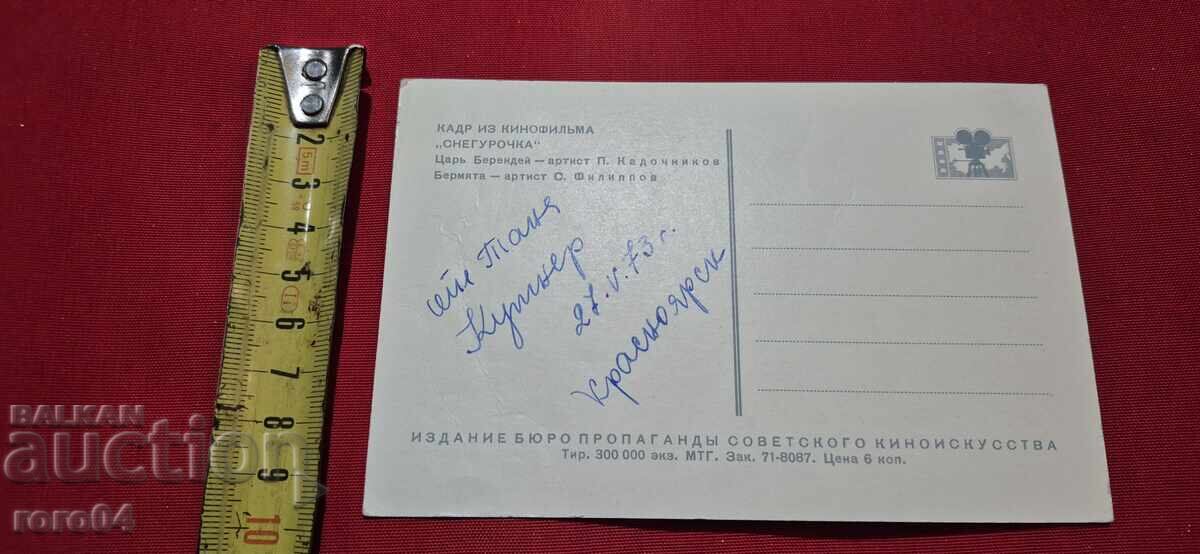 КАДР ИЗ КИНОФИЛЬМА
„СНЕГУРОЧКА"
Царь Берендей — артист П. Кадочников
Бермята — артист С. Филиппов
от Таня
27. V. 73 г.
Красноярск
ИЗДАНИЕ БЮРО ПРОПАГАНДЫ СОВЕТСКОГО КИНОИСКУССТВА
Тир. 300 000 экз. МТГ. Зак. 71-8087. Цена 6 коп.
2
5m
3
4
5
6
7
8
9
10
BALKAN
auction
roro04